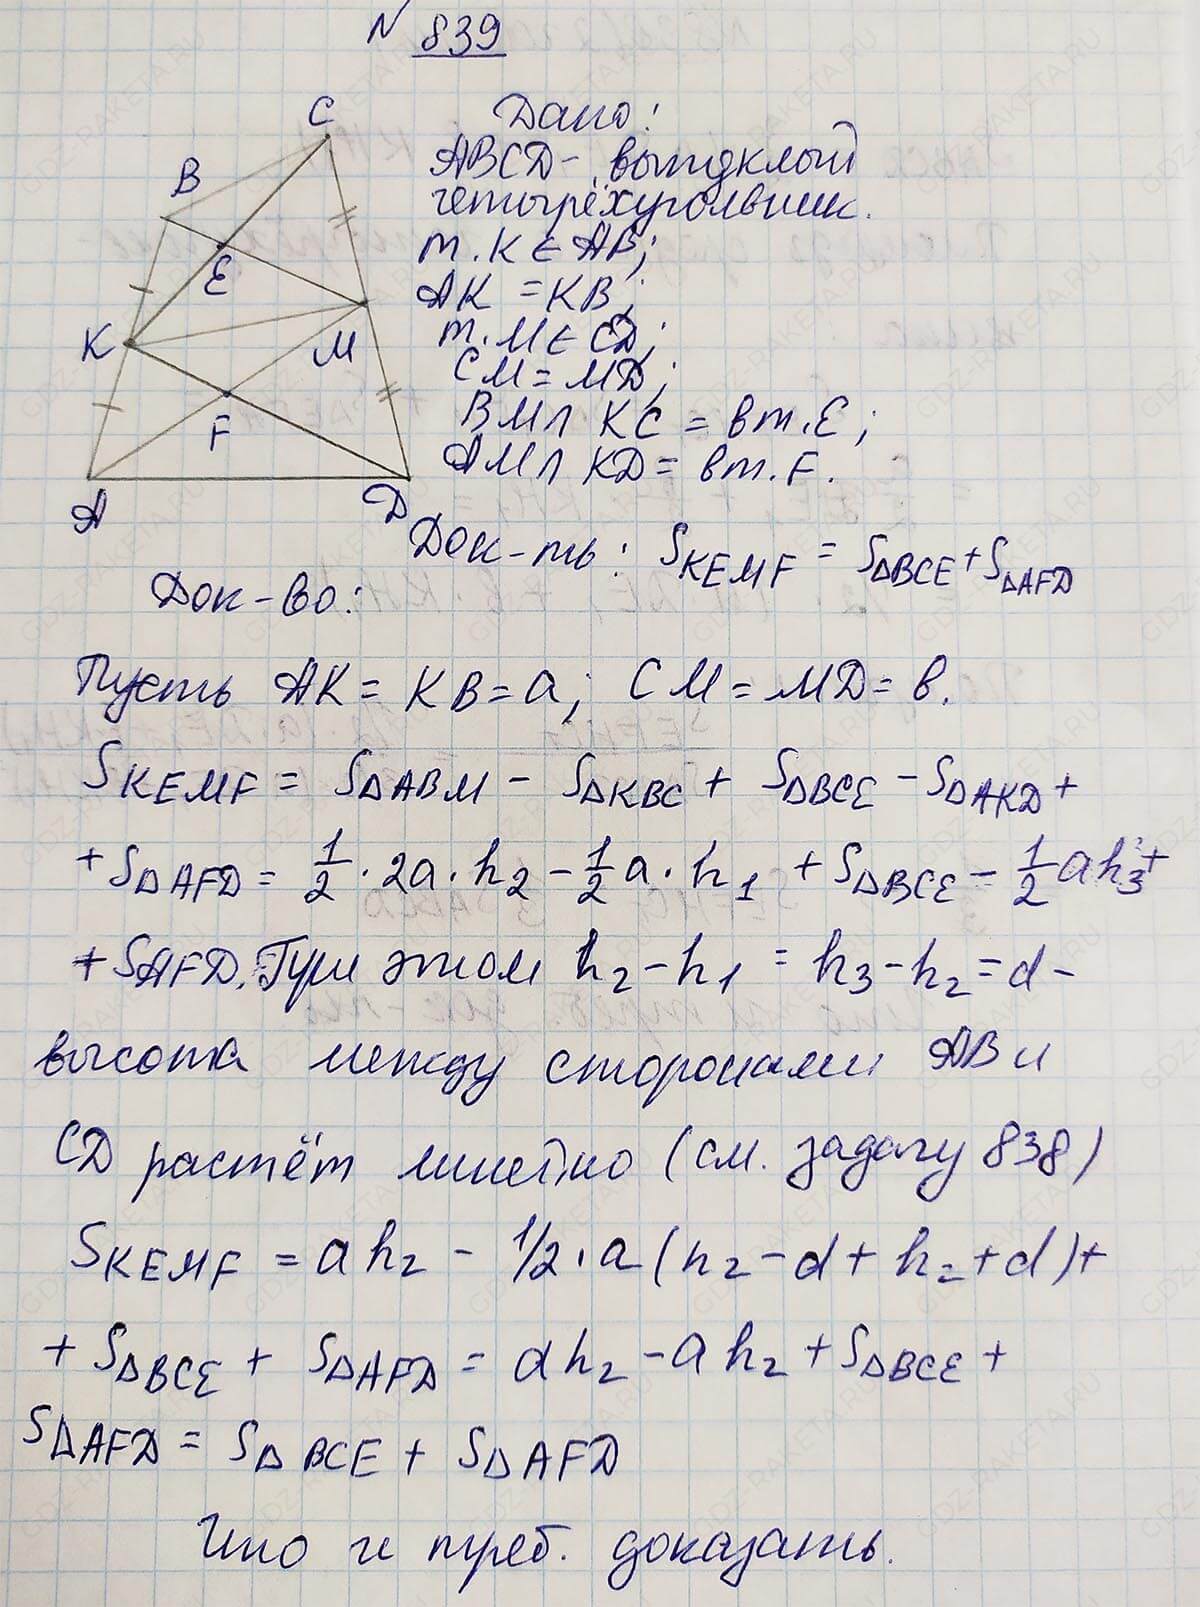 N 839
C
B
E
K
M
F
A
D
Дано:
ABCD - выпуклый
четырёхугольник.
т. K ∈ AB;
AK = KB;
т. M ∈ CD;
CM = MD;
BM ∩ KC = в т. E;
AM ∩ KD = в т. F.
Док-ть: S_KEMF = S_ΔBCE + S_ΔAFD
Док-во:
Пусть AK = KB = a; CM = MD = в.
S_KEMF = S_ΔABM - S_ΔKBC + S_ΔBCE - S_ΔAKD +
+ S_ΔAFD = 1/2 · 2a · h₂ - 1/2 a · h₁ + S_ΔBCE - 1/2 ah₃ +
+ S_AFD. При этом h₂ - h₁ = h₃ - h₂ = d -
высота между сторонами AB и
CD растёт линейно (см. задачу 838)
S_KEMF = ah₂ - 1/2 · a (h₂ - d + h₂ + d) +
+ S_ΔBCE + S_ΔAFD = ah₂ - ah₂ + S_ΔBCE +
S_ΔAFD = S_ΔBCE + S_ΔAFD
Что и треб. доказать.
GDZ-RAKETA.RU